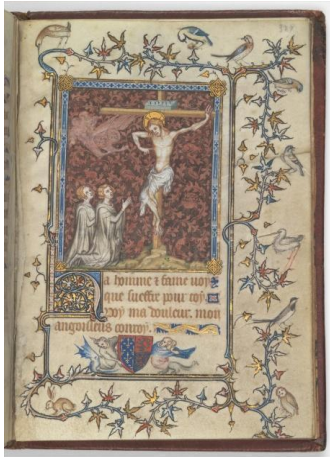 Ha homme ⁊ fame voy
que sueffre pour toy
voy ma douleur, mon
angoisseus conroy.